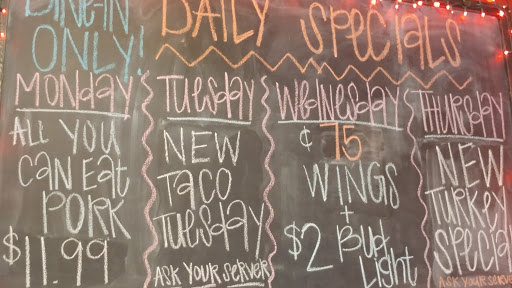 DINE-IN
ONLY!
DAILY SPECIALS
MONDAY
ALL YOU
CAN EAT
PORK
$11.99
TUESDAY
NEW
TACO
TUESDAY
ASK YOUR SERVER
WEDNESDAY
¢ 75
WINGS
+
$2 Bud
Light
THURSDAY
NEW
TURKEY
SPECIAL
ASK YOUR SERVER